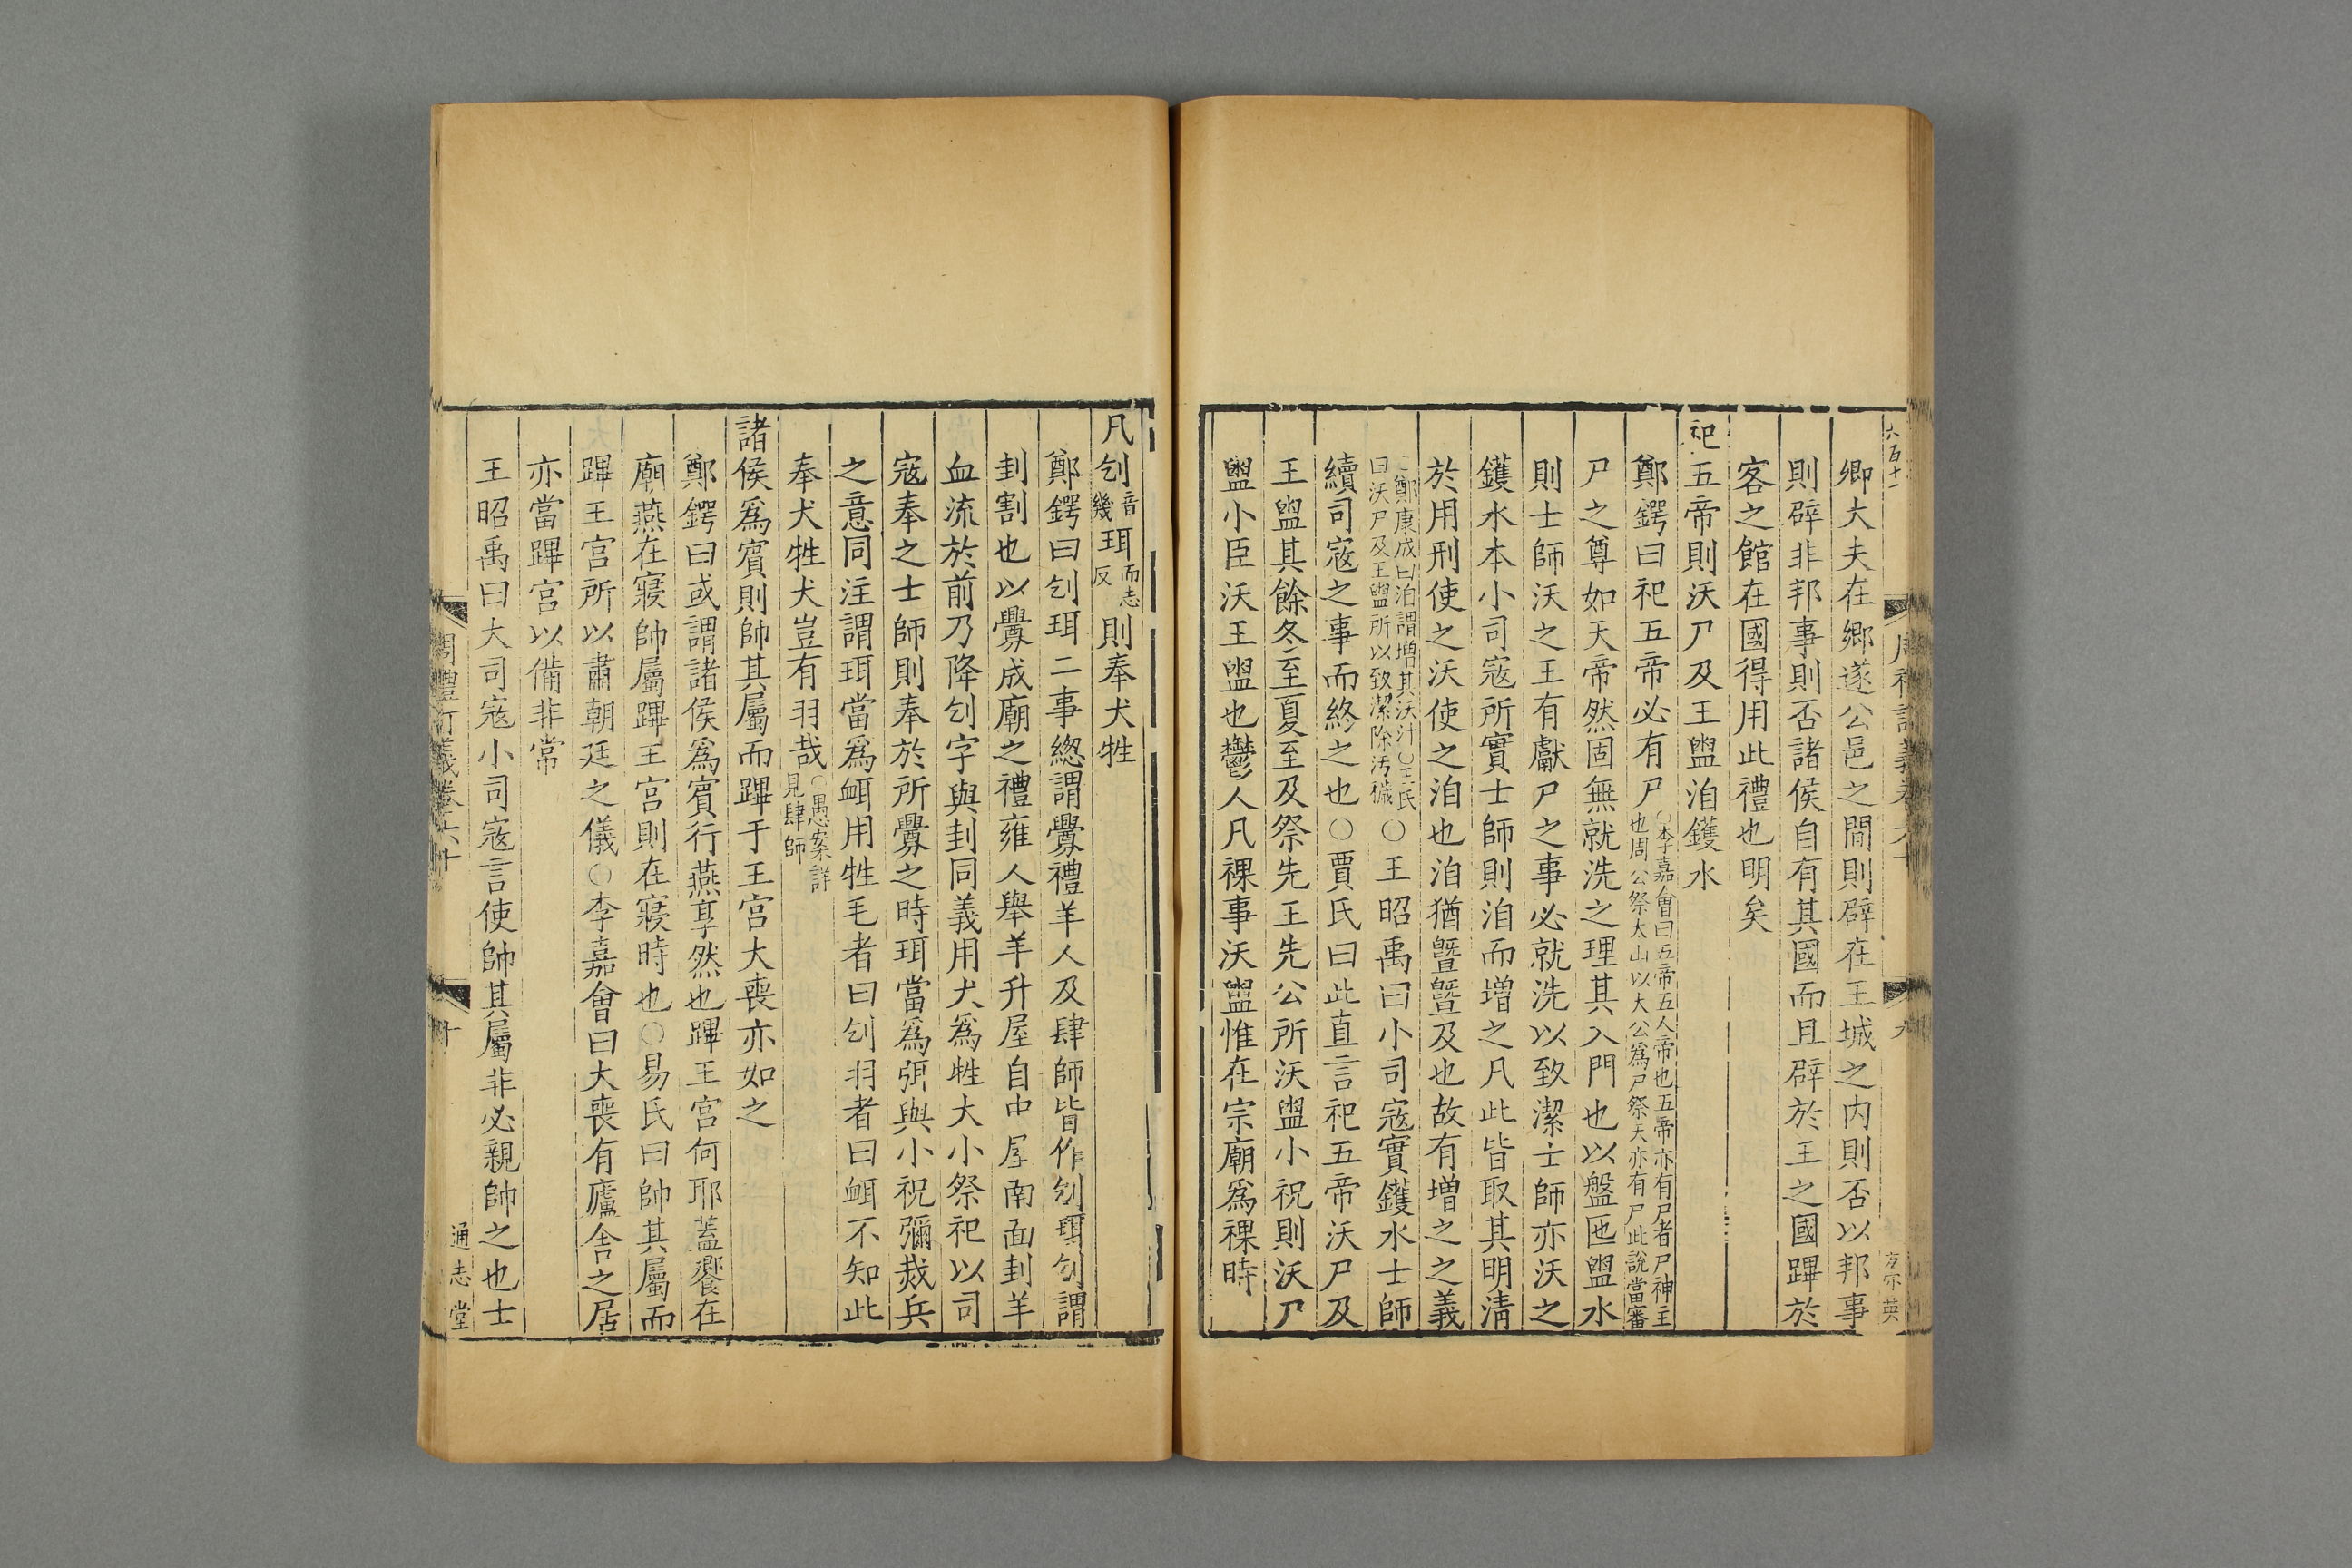 六百十一
卿大夫在鄉遂公邑之閒則辟在王城之內則否以邦事
則辟非邦事則否諸侯自有其國而且辟於王之國蹕於
客之館在國得用此禮也明矣
祀五帝則沃尸及王盥洎鑊水
鄭鍔曰祀五帝必有尸○李嘉會曰五帝五人帝也五帝亦有尸者尸神主
也周公祭太山以太公為尸祭天亦有尸此說當審
尸之尊如天帝然固無就洗之理其入門也以盤匜盥水
則士師沃之王有獻尸之事必就洗以致潔士師亦沃之
鑊水本小司寇所實士師則洎而增之凡此皆取其明淸
於用刑使之沃使之洎也洎猶曁曁及也故有增之之義
○鄭康成曰洎謂增其沃汁○王氏
曰沃尸及王盥所以致潔除汚穢
○王昭禹曰小司寇實鑊水士師
續司寇之事而終之也○賈氏曰此直言祀五帝沃尸及
王盥其餘冬至夏至及祭先王先公所沃盥小祝則沃尸
盥小臣沃王盥也鬱人凡祼事沃盥惟在宗廟爲祼時
凡刉音幾珥而志反則奉犬牲
鄭鍔曰刉珥二事緫謂釁禮羊人及肆師皆作刉珥刉謂
刲割也以釁成廟之禮雍人舉羊升屋自中屋南面刲羊
血流於前乃降刉字與刲同義用犬爲牲大小祭祀以司
寇奉之士師則奉於所釁之時珥當爲弭與小祝彌烖兵
之意同注謂珥當爲衈用牲毛者曰刉羽者曰衈不知此
奉犬牲犬豈有羽哉○愚案詳
見肆師
諸侯爲賓則帥其屬而蹕于王宮大喪亦如之
鄭鍔曰或謂諸侯爲賓行燕享然也蹕王宮何耶蓋饗在
廟燕在寢帥屬蹕王宮則在寢時也○易氏曰帥其屬而
蹕王宮所以肅朝廷之儀○李嘉會曰大喪有廬舍之居
亦當蹕宮以備非常
王昭禹曰大司寇小司寇言使帥其屬非必親帥之也士
周禮訂義卷六十
十
通志堂